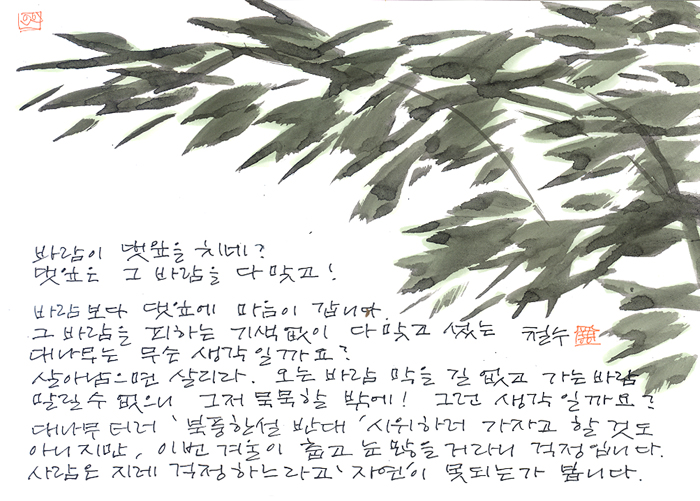 바람이 댓잎을 치네?
댓잎은 그 바람을 다 맞고!
바람보다 댓잎에 마음이 갑니다.
그 바람을 피하는 기색없이 다 맞고 섰는
대나무는 무슨 생각일까요?
철수
살아남으면 살리라. 오는 바람 막을 길 없고 가는 바람
말릴 수 없으니 그저 묵묵할 밖에! 그런 생각일까요?
대나무더러 '북풍한설 반대' 시위하러 가자고 할 것도
아니지만, 이번 겨울이 춥고 눈 많을 거라니 걱정입니다.
사람은 지레 걱정하느라고 '자연'이 못되는가 봅니다.